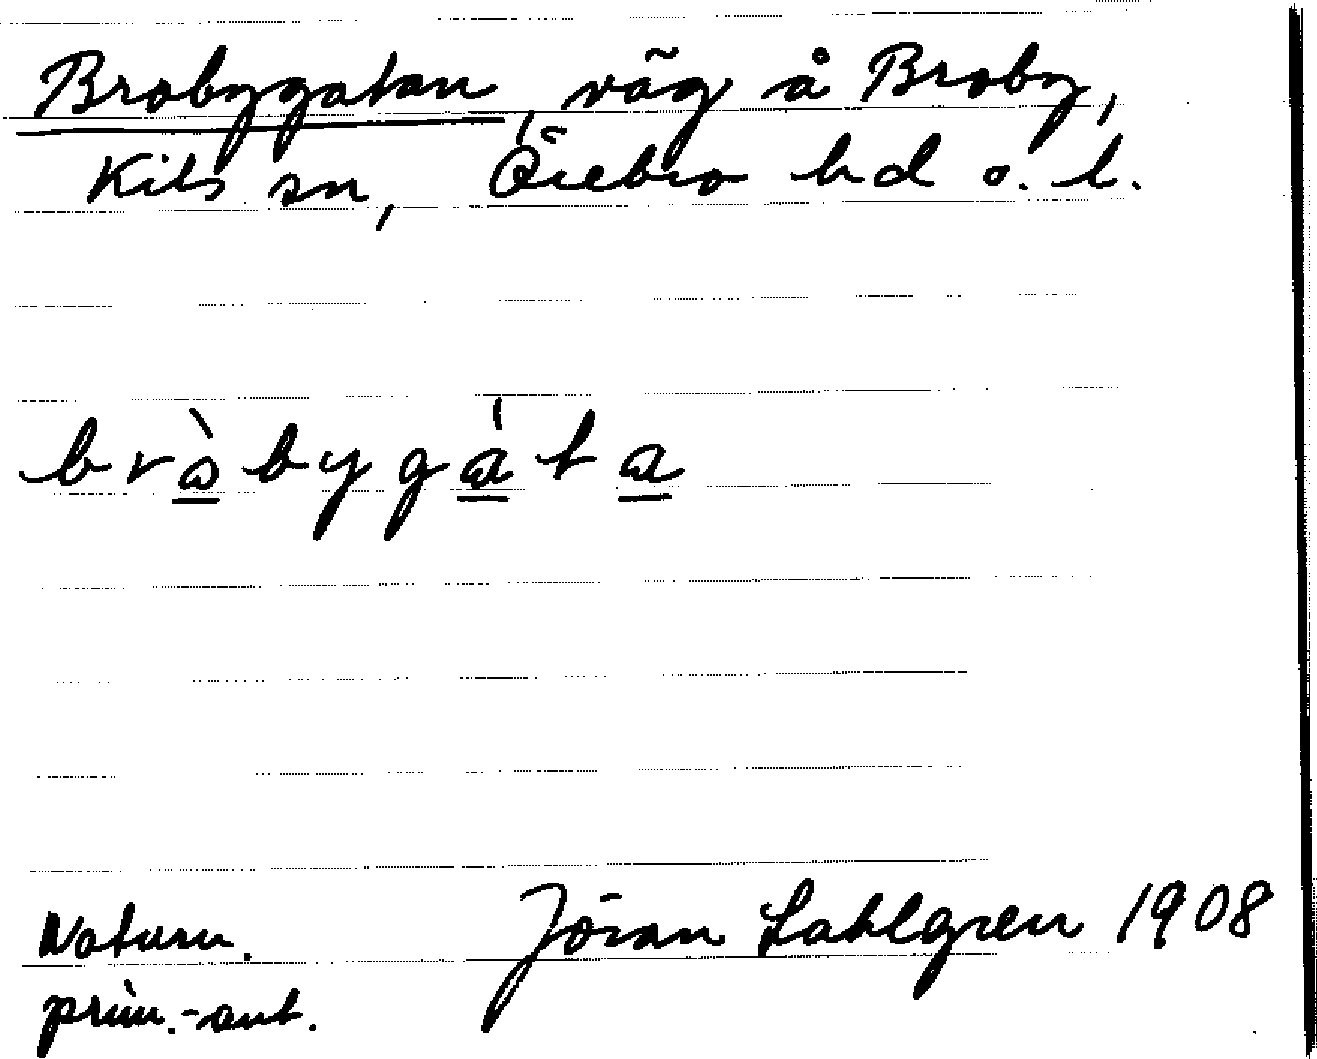 Brobygatan, väg å Broby,
Kils sn, Örebro hd o. l.
bròbygáta
Naturn. Jöran Sahlgren 1908
prim.-ant.